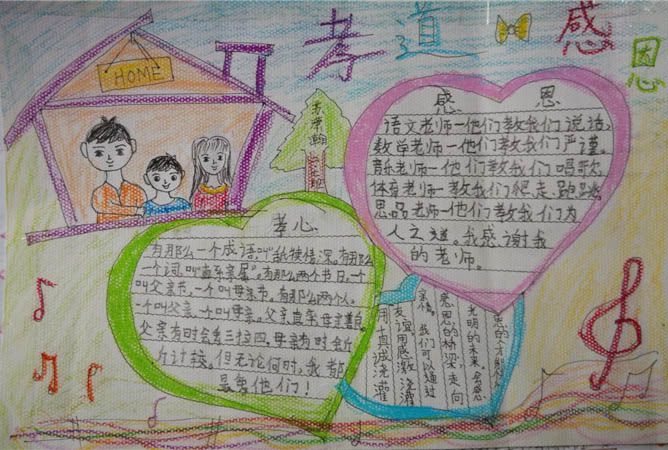 孝道
感
恩
HOME
感 恩
语文老师一他们教我们说话,
数学老师一他们教我们严谨。
音乐老师一他们教我们唱歌,
体育老师一教我们爬走跑跳
思品老师一他们教我们为
人之道。我感谢我
的老师。
孝心
有那么一个成语,叫"舐犊情深。有那么
一个词,叫"直系亲属"。有那么两个节日,一个
叫父亲节,一个叫母亲节。有那么两个人,
一个叫父亲,一个叫母亲。父亲直率,母亲善良
父亲有时会丢三拉四,母亲有时会斤
斤计较。但无论何时,我都
最爱他们!
光明的未来,
感恩的桥梁走向
亲情,我们可以通过
友谊用感激浇灌
用真诚浇灌